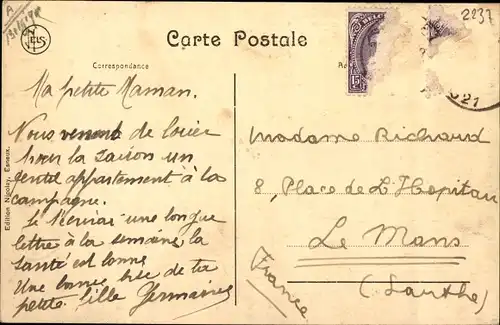 A
2237
NELS
Carte Postale
BELG
15
921
Correspondance
Ma petite Maman.
Nous venons de louer
pour la saison un
gentil appartement à la
campagne.
Je t'écrirai une longue
lettre à la semaine, la
santé est bonne
Une bonne bise de ta
petite fille Germaine
Madame Richard
8, Place de L'Hopitau
Le Mans
(Sarthe)
France
Edition Nicolay, Esneux.